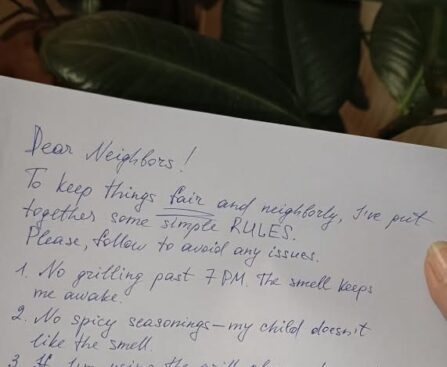 Dear Neighbors!
To keep things fair and neighborly, I've put
together some simple RULES.
Please, follow to avoid any issues.
1. No grilling past 7 PM. The smell keeps
me awake.
2. No spicy seasonings – my child doesn't
like the smell.
3. If I'm using the grill